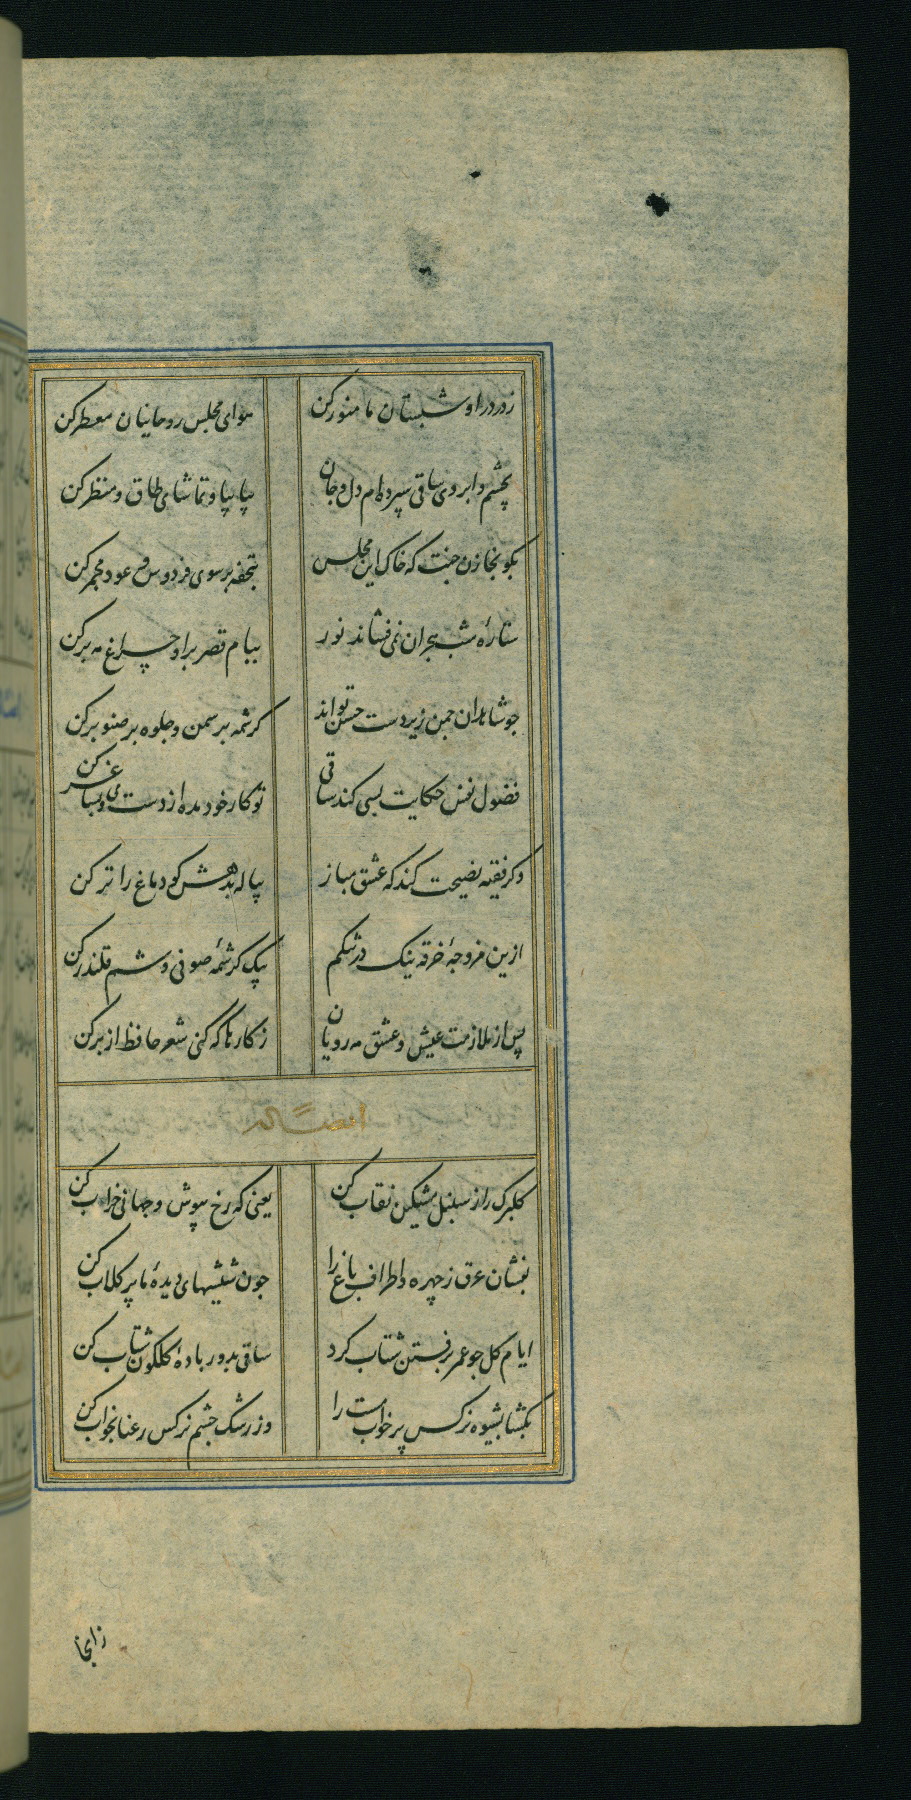 زدر درا و شبستان ما منور کن هوای مجلس روحانیان معطر کن
بچشم و ابروی ساقی سپرده‌ام دل و جان بیا بیا و تماشای طاق و منظر کن
بکو بخازن جنت که خاک این مجلس بتحفه بر سوی فردوس و عود مجمر کن
ستارهٔ شب هجران نمی فشاند نور ببام قصر برا و چراغ مه بر کن
جو شاهدان جمن زیردست حسن تو اند کرشمه بر سمن و جلوه بر صنوبر کن
فضول نفس حکایت بسی کند ساقی تو کار خود مده از دست و می بساغر کن
وکر فقیه نصیحت کند که عشق مباز پیاله بدهش کو دماغ را تر کن
ازین مزوجهٔ خرقه نیک در تنکم بیک کرشمهٔ صوفی وشم قلندر کن
پس از ملازمت عیش و عشق مه رویان ز کارها که کنی شعر حافظ از بر کن
ایضاً له
کلبرک را ز سنبل مشکین نقاب کن یعنی که رخ بپوش و جهانی خراب کن
بفشان عرق ز چهره و اطراف باغ را جون شیشهای دیدهٔ ما پر کلاب کن
ایام کل جو عمر برفتن شتاب کرد ساقی بدور بادهٔ کلکون شتاب کن
بکشا بشیوه نرکس پر خواب مست را وز رشک جشم نرکس رعنا بخواب کن
زانجا